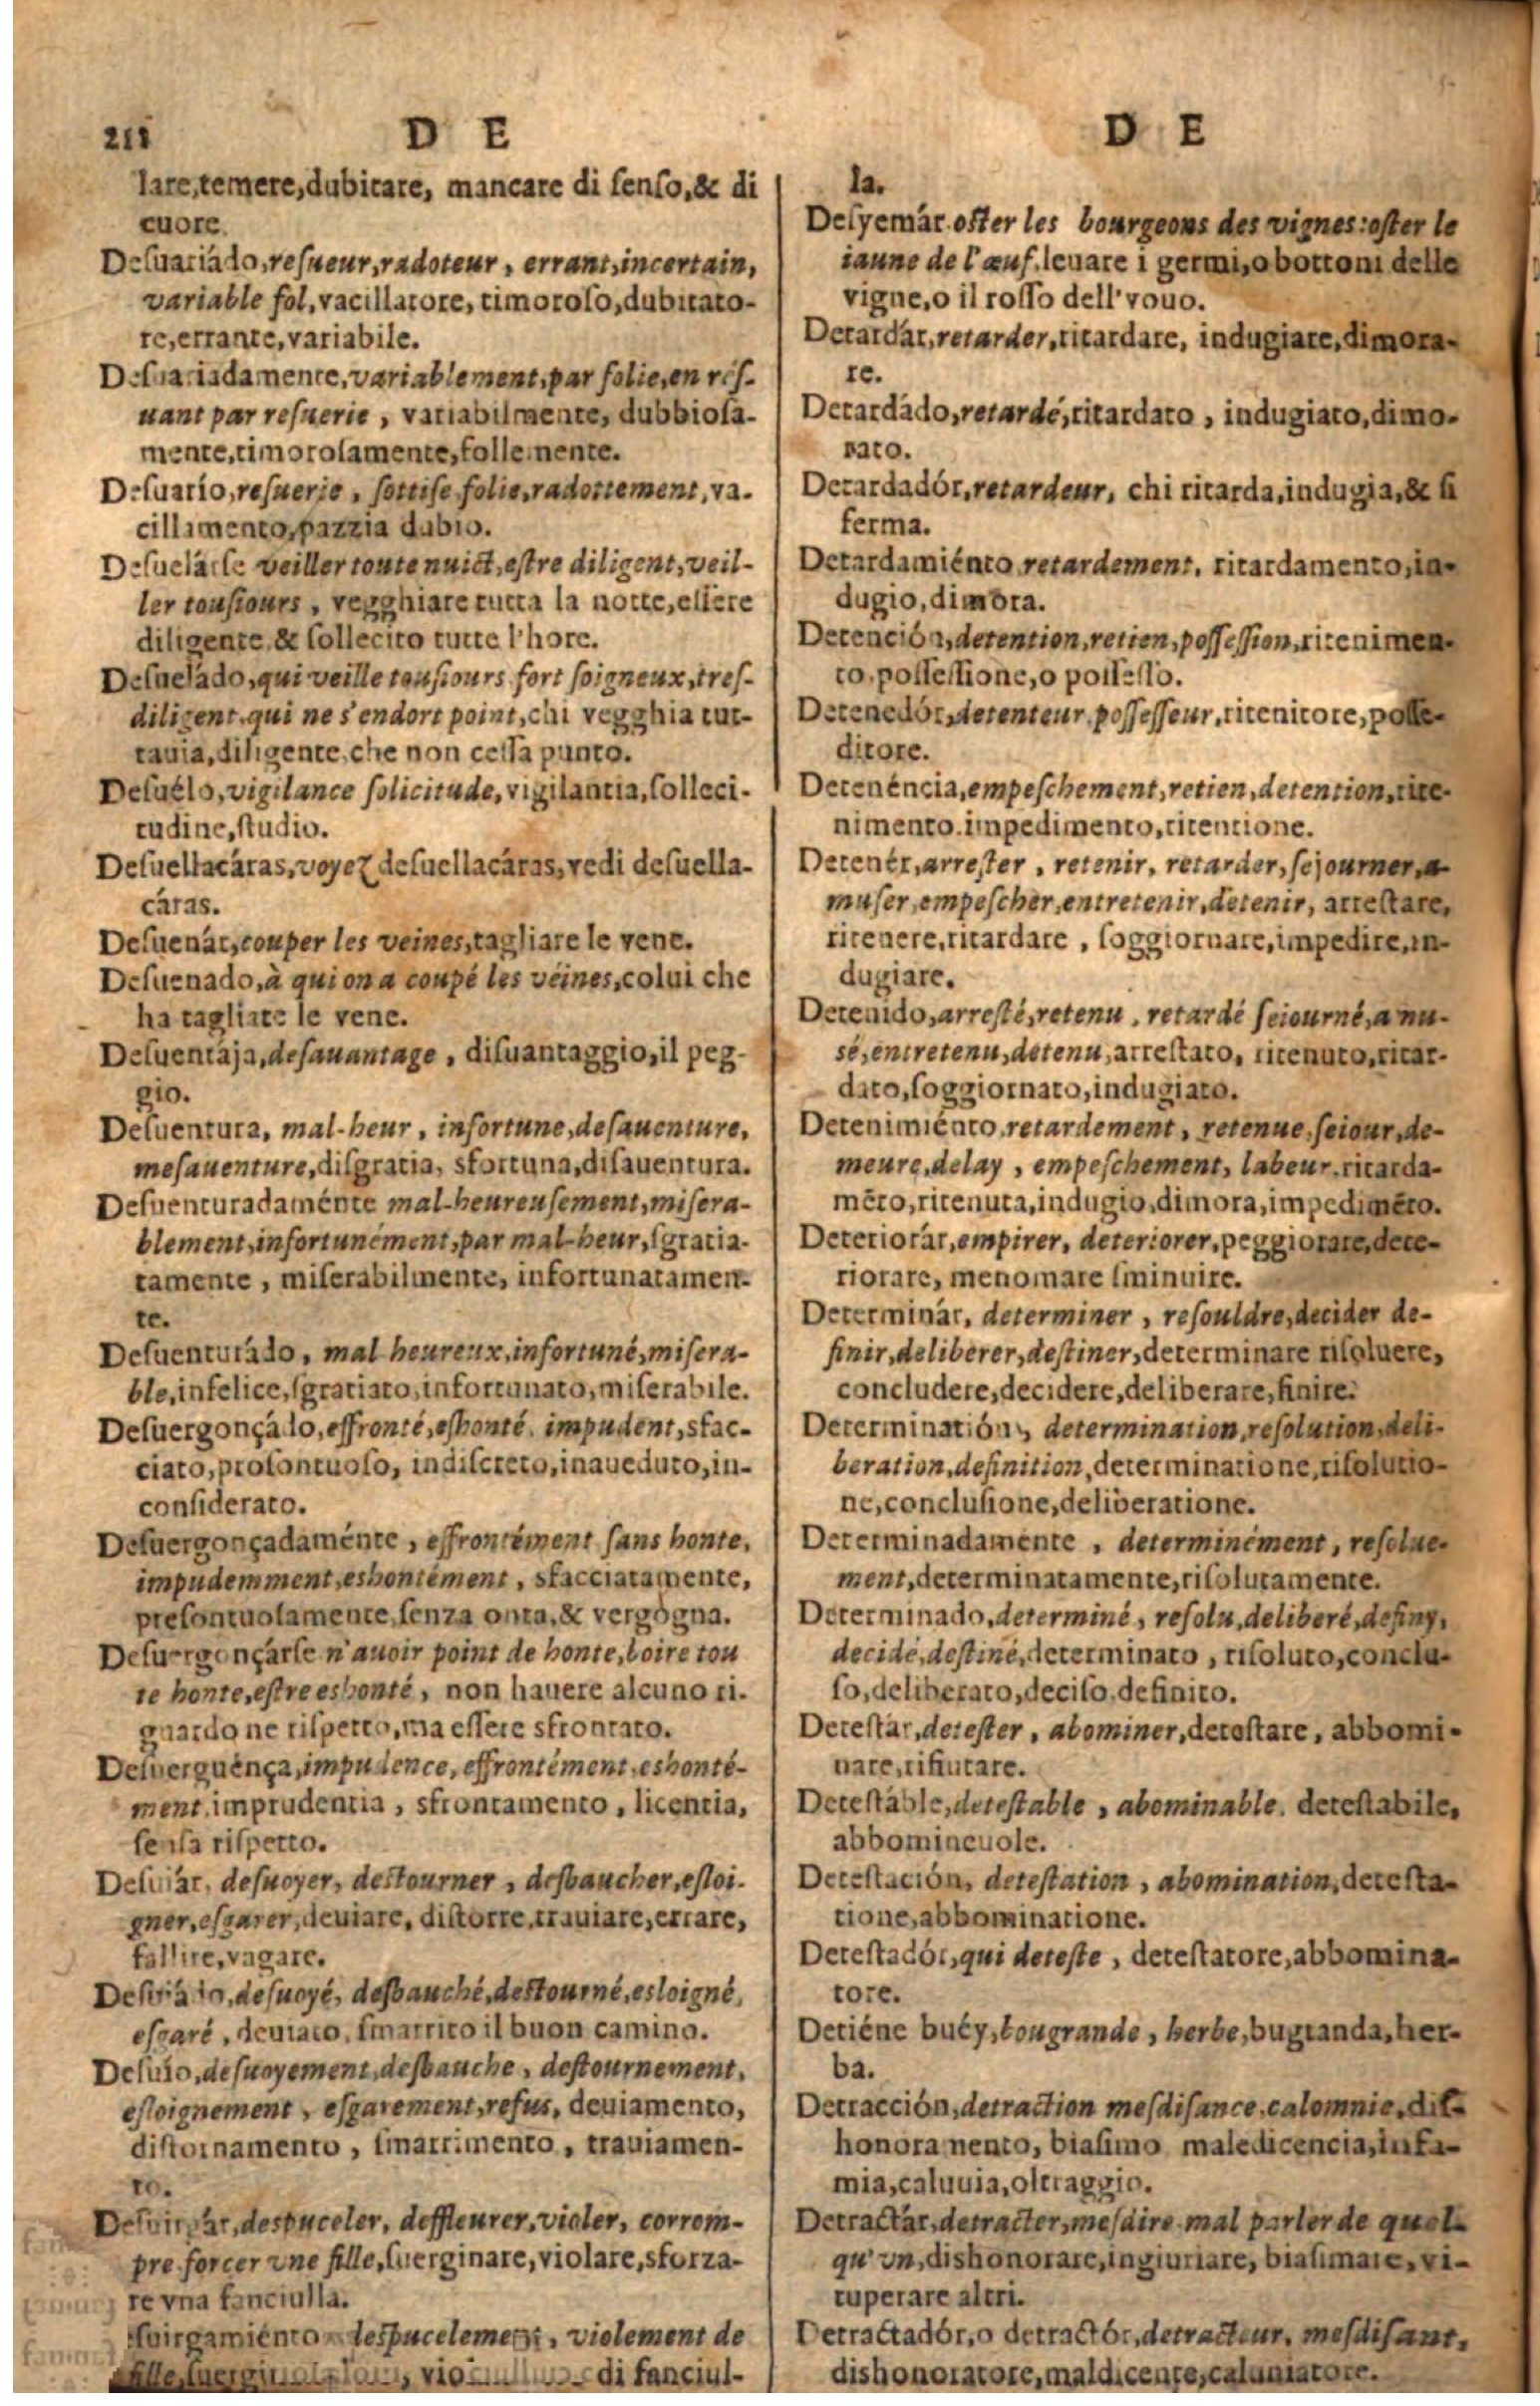 211 D E
lare,temere,dubitare, mancare di ſenſo,& di
cuore.
Deſuariádo,reſueur,radoteur, errant,incertain,
variable fol,vacillatore, timoroſo,dubitato-
re,errante,variabile.
Deſuariadamente,variablement,par folie,en reſ-
uant par reſuerie, variabilmente, dubbioſa-
mente,timoroſamente,follemente.
Deſuarío,reſuerie, ſottiſe folie,radottement,va-
cillamento,pazzia dubio.
Deſuelárſe veiller toute nuict,eſtre diligent,veil-
ler touſiours, vegghiare tutta la notte,eſſere
diligente & ſollecito tutte l'hore.
Deſueládo,qui veille touſiours fort ſoigneux,treſ-
diligent,qui ne s'endort point,chi vegghia tut-
tauia,diligente,che non ceſſa punto.
Deſuélo,vigilance ſolicitude,vigilantia,ſolleci-
tudine,ſtudio.
Deſuellacáras,voyez deſuellacáras,vedi deſuella-
cáras.
Deſuenár,couper les veines,tagliare le vene.
Deſuenado,à qui on a coupé les véines,colui che
ha tagliate le vene.
Deſuentája,deſauantage, diſuantaggio,il peg-
gio.
Deſuentura, mal-heur, infortune,deſauenture,
meſauenture,diſgratia, sfortuna,diſauentura.
Deſuenturadaménte mal-heureuſement,miſera-
blement,infortunément,par mal-heur,ſgratia-
tamente, miſerabilmente, infortunatamen-
te.
Deſuenturádo, mal heureux,infortuné,miſera-
ble,infelice,ſgratiato,infortunato,miſerabile.
Deſuergonçado,effronté,eshonté, impudent,sfac-
ciato,proſontuoſo, indiſcreto,inaueduto,in-
conſiderato.
Deſuergonçadaménte, effrontément ſans honte,
impudemment,eshontément, sfacciatamente,
preſontuoſamente,ſenza onta,& vergogna.
Deſuergonçárſe n'auoir point de honte,boire tou
te honte,eſtre eshonté, non hauere alcuno ri-
guardo ne riſpetto,ma eſſere sfrontato.
Deſuerguénça,impudence, effrontément,eshonté-
ment,imprudentia, sfrontamento, licentia,
ſenſa riſpetto.
Deſuiár, deſuoyer, deſtourner, desbaucher,eſloi-
gner,eſgarer,deuiare, diſtorre,trauiare,errare,
fallire,vagare.
Deſuiádo,deſuoyé, desbauché,deſtourné,esloigné,
eſgaré, deuiato, ſmarrito il buon camino.
Deſuío,deſuoyement,desbauche, deſtournement,
eſloignement, eſgarement,refus, deuiamento,
diſtornamento, ſmarrimento, trauiamen-
to.
Deſuirgár,despuceler, deffleurer,violer, corrom-
pre forcer vne fille,ſuerginare,violare,sforza-
re vna fanciulla.
ſuirgamiénto despucelement, violement de
fille, di fanciul-
D E
la.
Deſyemár oſter les bourgeons des vignes:oſter le
iaune de l'œuf,leuare i germi,o bottoni delle
vigne,o il roſſo dell'vouo.
Detardár,retarder,ritardare, indugiare,dimora-
re.
Detardádo,retardé,ritardato, indugiato,dimo-
rato.
Detardadór,retardeur, chi ritarda,indugia,& ſi
ferma.
Detardamiénto retardement, ritardamento,in-
dugio,dimora.
Detención,detention,retien,poſſeſſion,ritenimen-
to,poſſeſſione,o poſſeſſo.
Detenedór,detenteur,poſſeſſeur,ritenitore,poſſe-
ditore.
Detenéncia,empeſchement,retien,detention,rite-
nimento,impedimento,ritentione.
Detenér,arreſter, retenir, retarder,ſejourner,a-
muſer,empeſcher,entretenir,detenir, arreſtare,
ritenere,ritardare, ſoggiornare,impedire,in-
dugiare.
Detenido,arreſté,retenu, retardé ſeiourné,a nu-
sé,entretenu,detenu,arreſtato, ritenuto,ritar-
dato,ſoggiornato,indugiato.
Detenimiénto,retardement, retenue,ſeiour,de-
meure,delay, empeſchement, labeur,ritarda-
mẽto,ritenuta,indugio,dimora,impedimẽto.
Deteriorár,empirer, deteriorer,peggiorare,dete-
riorare, menomare ſminuire.
Determinár, determiner, reſouldre,decider de-
finir,deliberer,deſtiner,determinare riſoluere,
concludere,decidere,deliberare,finire.
Determinatión, determination,reſolution,deli-
beration,definition,determinatione,riſolutio-
ne,concluſione,deliberatione.
Determinadaménte, determinément, reſolue-
ment,determinatamente,riſolutamente.
Determinado,determiné, reſolu,deliberé,definy,
decidé,deſtiné,determinato, riſoluto,conclu-
ſo,deliberato,deciſo,definito.
Deteſtár,deteſter, abominer,deteſtare, abbomi-
nare,rifiutare.
Deteſtáble,deteſtable, abominable, deteſtabile,
abbomineuole.
Deteſtación, deteſtation, abomination,deteſta-
tione,abbominatione.
Deteſtadór,qui deteſte, deteſtatore,abbomina-
tore.
Detiéne buéy,bougrande, herbe,bugranda,her-
ba.
Detracción,detraction meſdiſance,calomnie,diſ-
honoramento, biaſimo maledicencia,infa-
mia,caluuia,oltraggio.
Detractár,detracter,meſdire mal parler de quel-
qu'vn,dishonorare,ingiuriare, biaſimare, vi-
tuperare altri.
Detractadór,o detractór,detracteur, meſdiſant,
dishonoratore,maldicente,caluniatore.